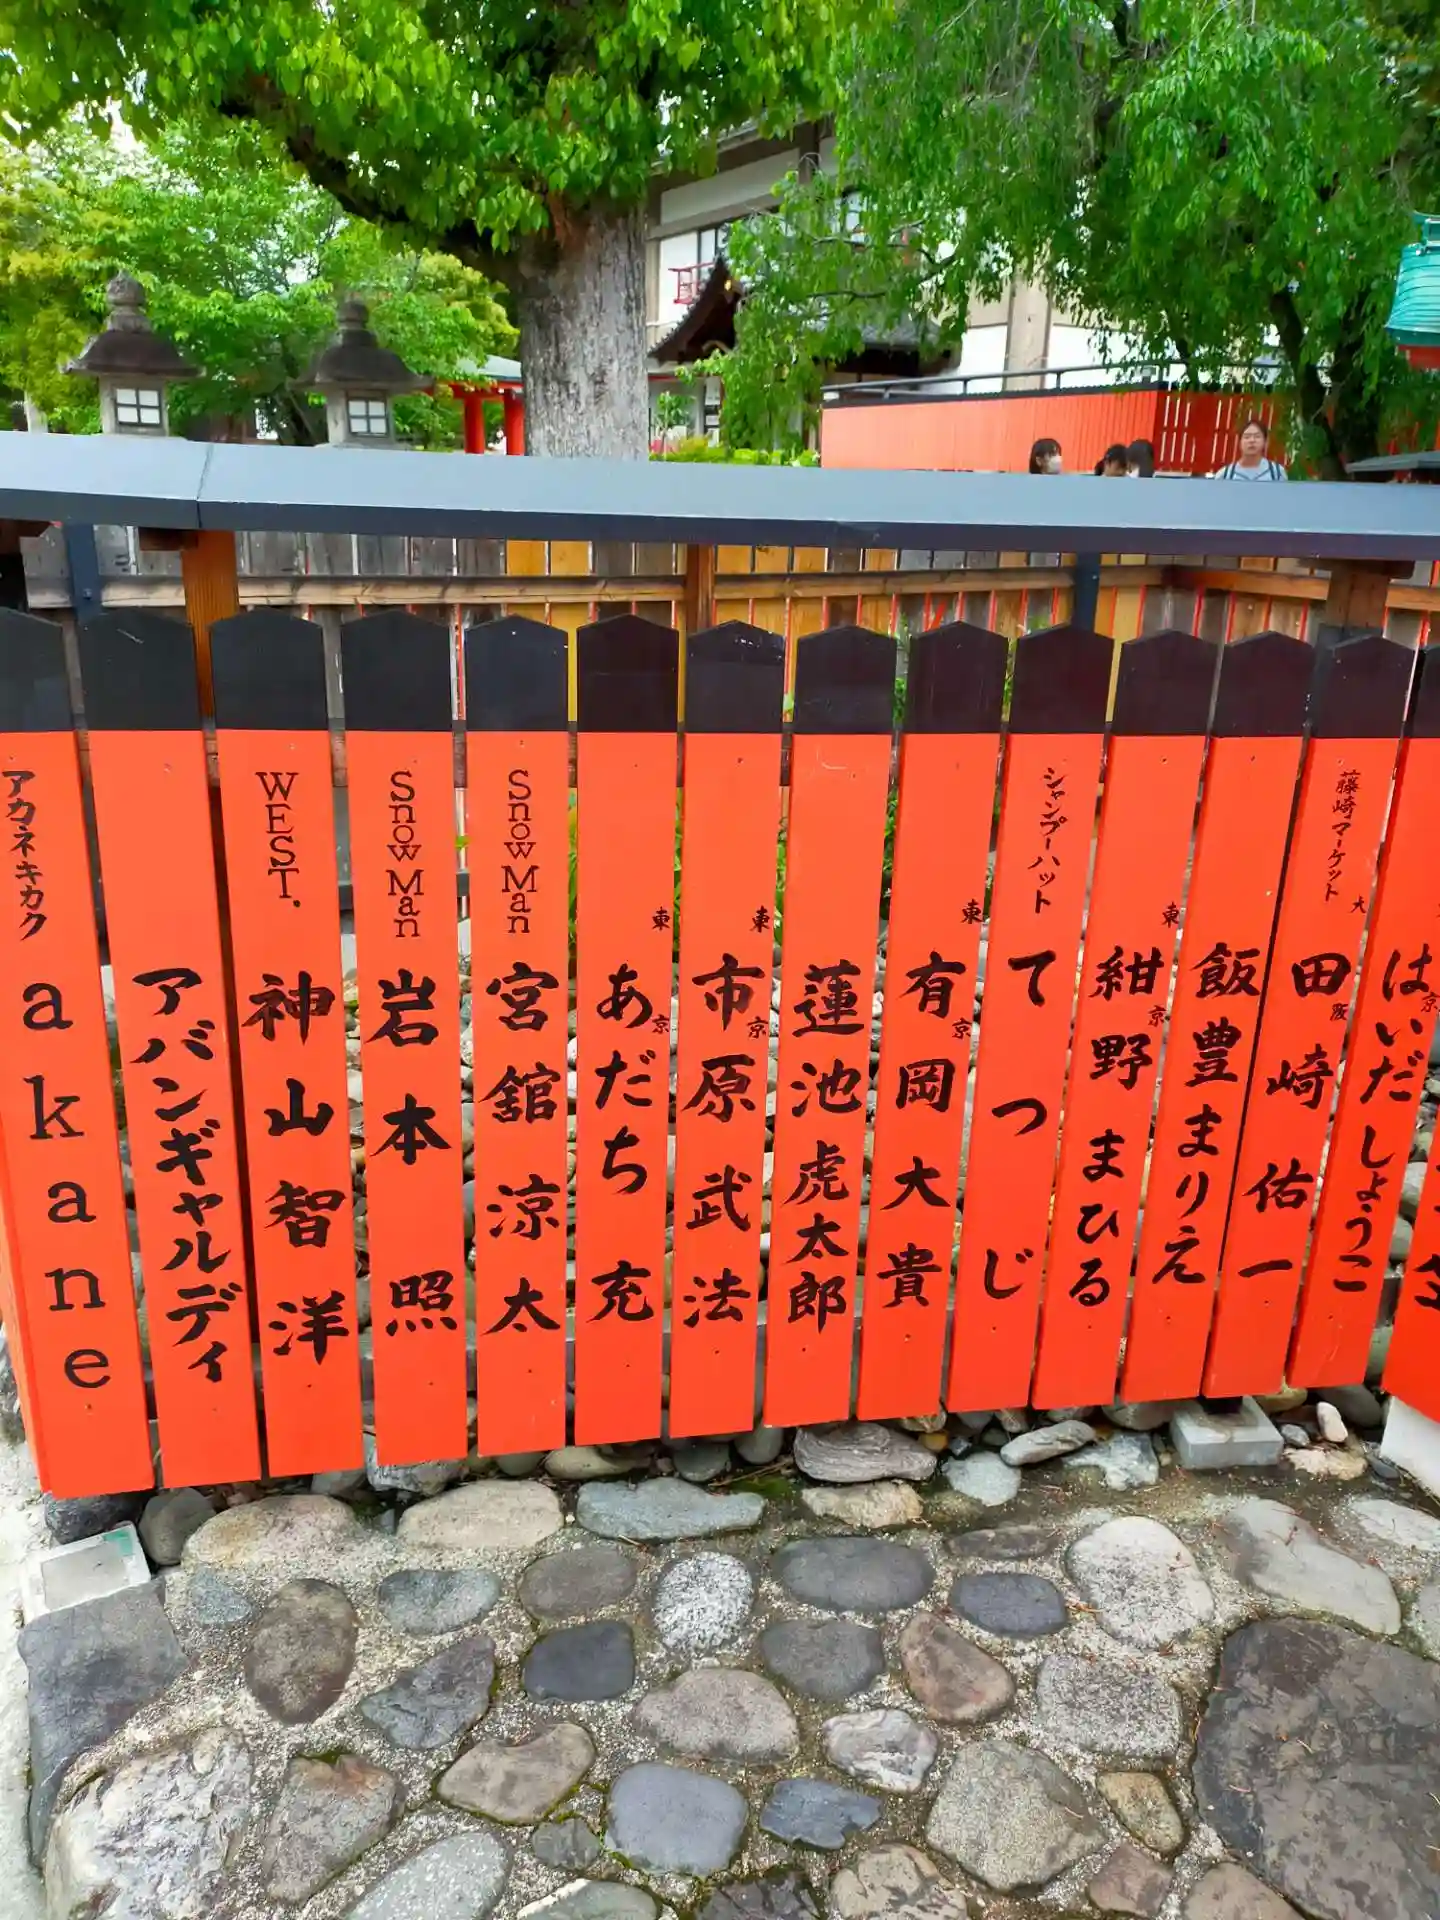 アカネキカク akane
アバンギャルディ
WEST. 神山智洋
Snow Man 岩本照
Snow Man 宮舘涼太
東京 あだち充
東京 市原武法
蓮池虎太郎
東京 有岡大貴
シャンプーハット てつじ
東京 紺野まひる
飯豊まりえ
藤崎マーケット 大阪 田崎佑一
京 はいだしょうこ